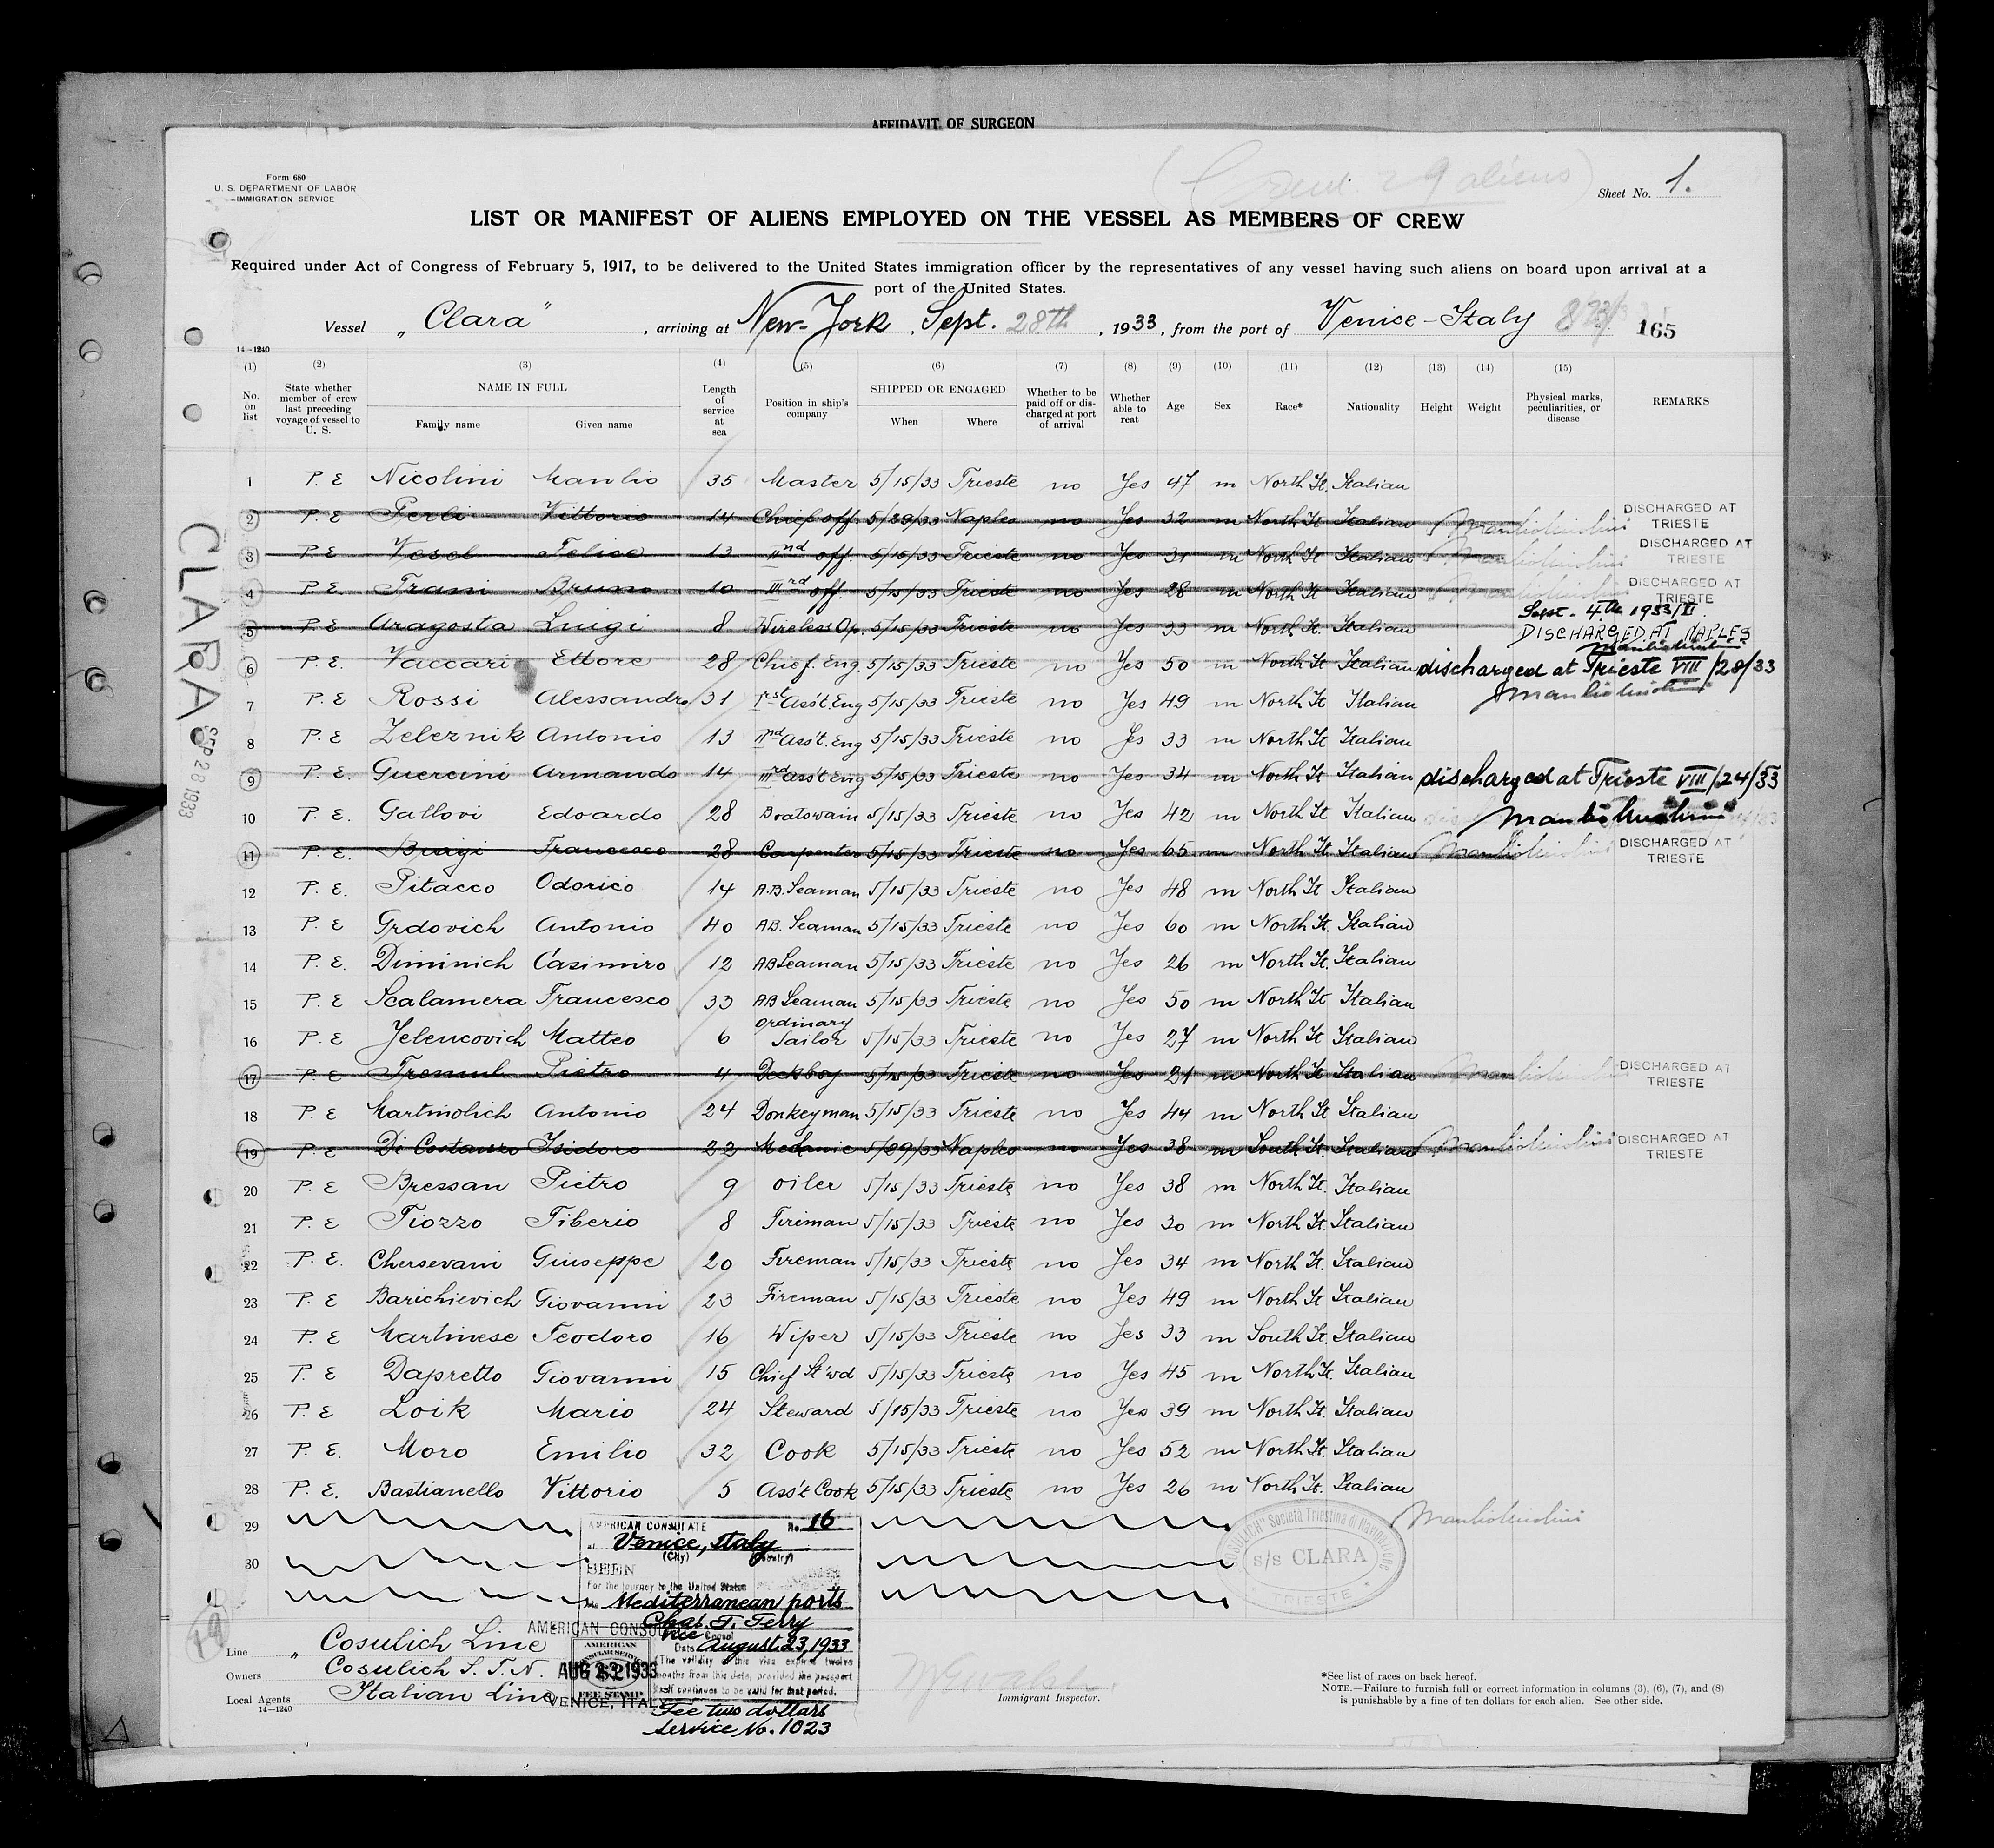 AFFIDAVIT OF SURGEON
Form 680
U. S. DEPARTMENT OF LABOR
IMMIGRATION SERVICE
Sheet No. 1.
LIST OR MANIFEST OF ALIENS EMPLOYED ON THE VESSEL AS MEMBERS OF CREW
Required under Act of Congress of February 5, 1917, to be delivered to the United States immigration officer by the representatives of any vessel having such aliens on board upon arrival at a
port of the United States.
Vessel „ Clara " , arriving at New-York , Sept. 28th , 1933, from the port of Venice - Italy 165
14—1240
(1) (2) (3) (4) (5) (6) (7) (8) (9) (10) (11) (12) (13) (14) (15)
No. on list State whether member of crew last preceding voyage of vessel to U. S. NAME IN FULL Family name Given name Length of service at sea Position in ship's company SHIPPED OR ENGAGED When Where Whether to be paid off or discharged at port of arrival Whether able to reat Age Sex Race* Nationality Height Weight Physical marks, peculiarities, or disease REMARKS
1 P. E Nicolini Manlio 35 Master 5/15/33 Trieste no Yes 47 m North It. Italian
2 P. E Perli Vittorio 14 Chief off. 5/29/33 Naples no Yes 32 m North It Italian DISCHARGED AT TRIESTE
3 P E Vesel Felice 13 IInd off. 5/15/33 Trieste no Yes 31 m North It Italian DISCHARGED AT TRIESTE
4 P E. Trani Bruno 10 IIIrd off. 5/15/33 Trieste no Yes 28 m North It Italian DISCHARGED AT TRIESTE
5 P E Aragosta Luigi 8 Wireless Op. 5/15/33 Trieste no Yes 33 m North It. Italian Sept. 4th 1933/XI DISCHARGED AT NAPLES
6 P. E. Vaccari Ettore 28 Chief. Eng. 5/15/33 Trieste no Yes 50 m North It Italian discharged at Trieste VIII/28/33
7 P. E Rossi Alessandro 31 Irst Ass't. Eng 5/15/33 Trieste no Yes 49 m North It Italian
8 P. E Zeleznik Antonio 13 IInd Ass't. Eng 5/15/33 Trieste no Yes 33 m North It Italian
9 P. E. Guercini Armando 14 IIIrd Ass't Eng 5/15/33 Trieste no Yes 34 m North It Italian discharged at Trieste VIII/24/33
10 P. E. Gallovi Edoardo 28 Boatswain 5/15/33 Trieste no Yes 42 m North It Italian
11 P. E. Biagi Francesco 28 Carpenter 5/15/33 Trieste no Yes 65 m North It Italian DISCHARGED AT TRIESTE
12 P. E. Pitacco Odorico 14 A.B. Seaman 5/15/33 Trieste no Yes 48 m North It Italian
13 P. E Grdovich Antonio 40 AB. Seaman 5/15/33 Trieste no Yes 60 m North It. Italian
14 P. E. Diminich Casimiro 12 AB Seaman 5/15/33 Trieste no Yes 26 m North It. Italian
15 P. E Scalamera Francesco 33 AB Seaman 5/15/33 Trieste no Yes 50 m North It Italian
16 P. E Jelencovich Matteo 6 ordinary Sailor 5/15/33 Trieste no Yes 27 m North It Italian
17 P. E Tremul Pietro 4 Deckboy 5/15/33 Trieste no Yes 21 m North It Italian DISCHARGED AT TRIESTE
18 P. E Martinolich Antonio 24 Donkeyman 5/15/33 Trieste no Yes 44 m North It Italian
19 P. E Di Costanzo Isidoro 22 Mechanic 5/29/33 Naples no Yes 38 m South It. Italian DISCHARGED AT TRIESTE
20 P. E Bressan Pietro 9 oiler 5/15/33 Trieste no Yes 38 m North It. Italian
21 P. E Tiozzo Tiberio 8 Fireman 5/15/33 Trieste no Yes 30 m North It. Italian
22 P. E. Chersevani Giuseppe 20 Fireman 5/15/33 Trieste no Yes 34 m North It. Italian
23 P. E Barichievich Giovanni 23 Fireman 5/15/33 Trieste no Yes 49 m North It Italian
24 P. E Martinese Teodoro 16 Wiper 5/15/33 Trieste no Yes 33 m South It. Italian
25 P. E Dapretto Giovanni 15 Chief St'wd 5/15/33 Trieste no Yes 45 m North It. Italian
26 P. E Loik Mario 24 Steward 5/15/33 Trieste no Yes 39 m North It. Italian
27 P. E. Moro Emilio 32 Cook 5/15/33 Trieste no Yes 52 m North It. Italian
28 P. E. Bastianello Vittorio 5 Ass't Cook 5/15/33 Trieste no Yes 26 m North It. Italian
29
30
CLARA
SEP 28 1933
AMERICAN CONSULATE No. 16
at Venice, Italy
(City) (Country)
SEEN
For the journey to the United States
Mediterranean ports
Chas. T. Terry
Vice Consul
Date August 23, 1933
The validity of this visa expires twelve
months from this date, provided the passport
itself continues to be valid for that period.
Fee two dollars
Service No. 1023
AMERICAN CONSULAR SERVICE
FEE STAMP
AUG 23 1933
VENICE, ITALY
"COSULICH" Società Triestina di Navigazione
s/s CLARA
TRIESTE
Line „ Cosulich Line
Owners Cosulich S. T. N.
Local Agents Italian Line
14—1240
Immigrant Inspector.
*See list of races on back hereof.
NOTE.—Failure to furnish full or correct information in columns (3), (6), (7), and (8)
is punishable by a fine of ten dollars for each alien. See other side.